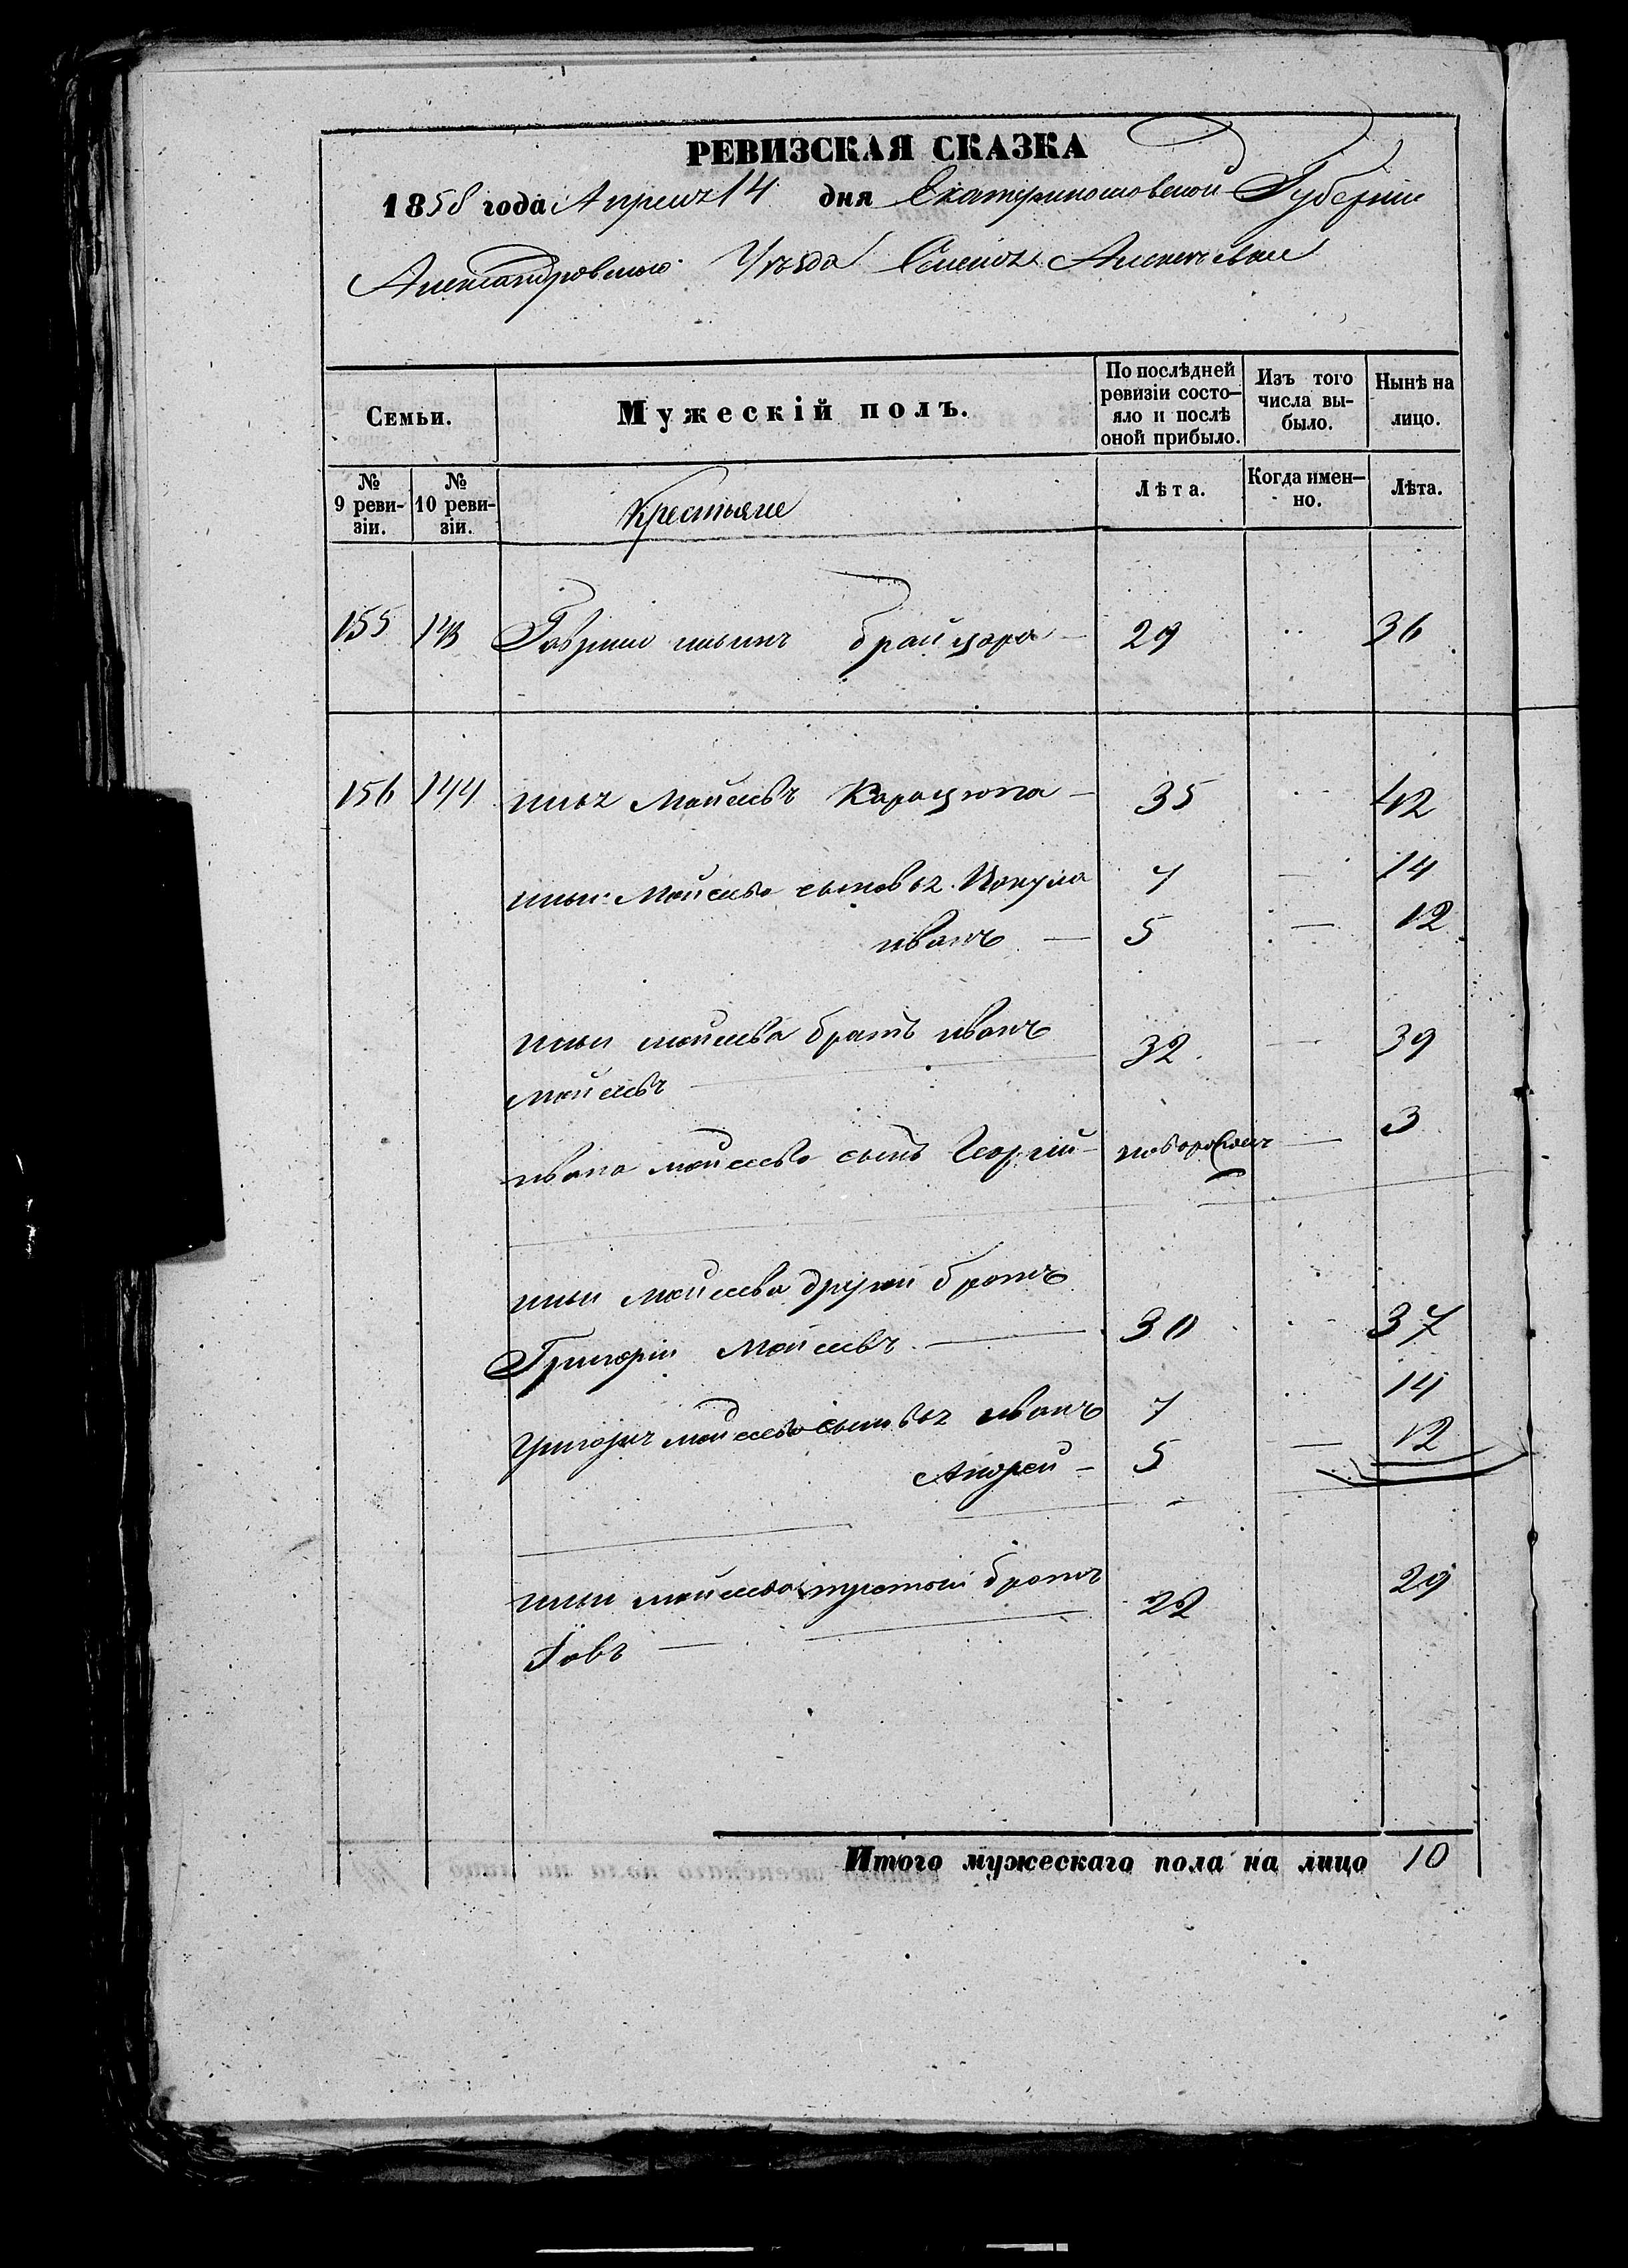 РЕВИЗСКАЯ СКАЗКА
1858 года Апреля 14 дня Екатеринославской Губернии
Александровского Уезда Селения
Семьи.
Мужескій полъ.
По послѣдней ревизіи состояло и послѣ оной прибыло.
Изъ того числа выбыло.
Нынѣ на лицо.
№ 9 ревизіи.
№ 10 ревизіи.
Крестьяне
Лѣта.
Когда именно.
Лѣта.
155 143 Гаврило ильинъ 29 36
156 144 илья Моисеевъ 35 42
ильи Моисеева сыновья Вакула 7 14
иванъ 5 12
ильи моисеева братъ иванъ 32 39
моисеевъ
ивана моисеева сынъ Георгій новорожден 3
ильи моисеева другой братъ
Григорій Моисеевъ 30 37
григорья моисеева сыновья иванъ 7 14
Андрей 5 12
ильи моисеева третий братъ 22 29
Іовъ
Итого мужескаго пола на лицо 10